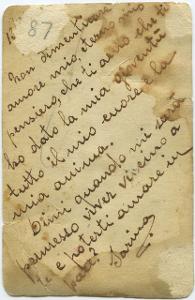 87
Non dimenticare
amore mio, eterno mio
pensiero, che ti amo che ti
ho dato la mia gioventù
tutto il mio cuore e la
mia anima.
Dimmi quando mi sarà
permesso viver vicino a
te e poterti amare in
pace.